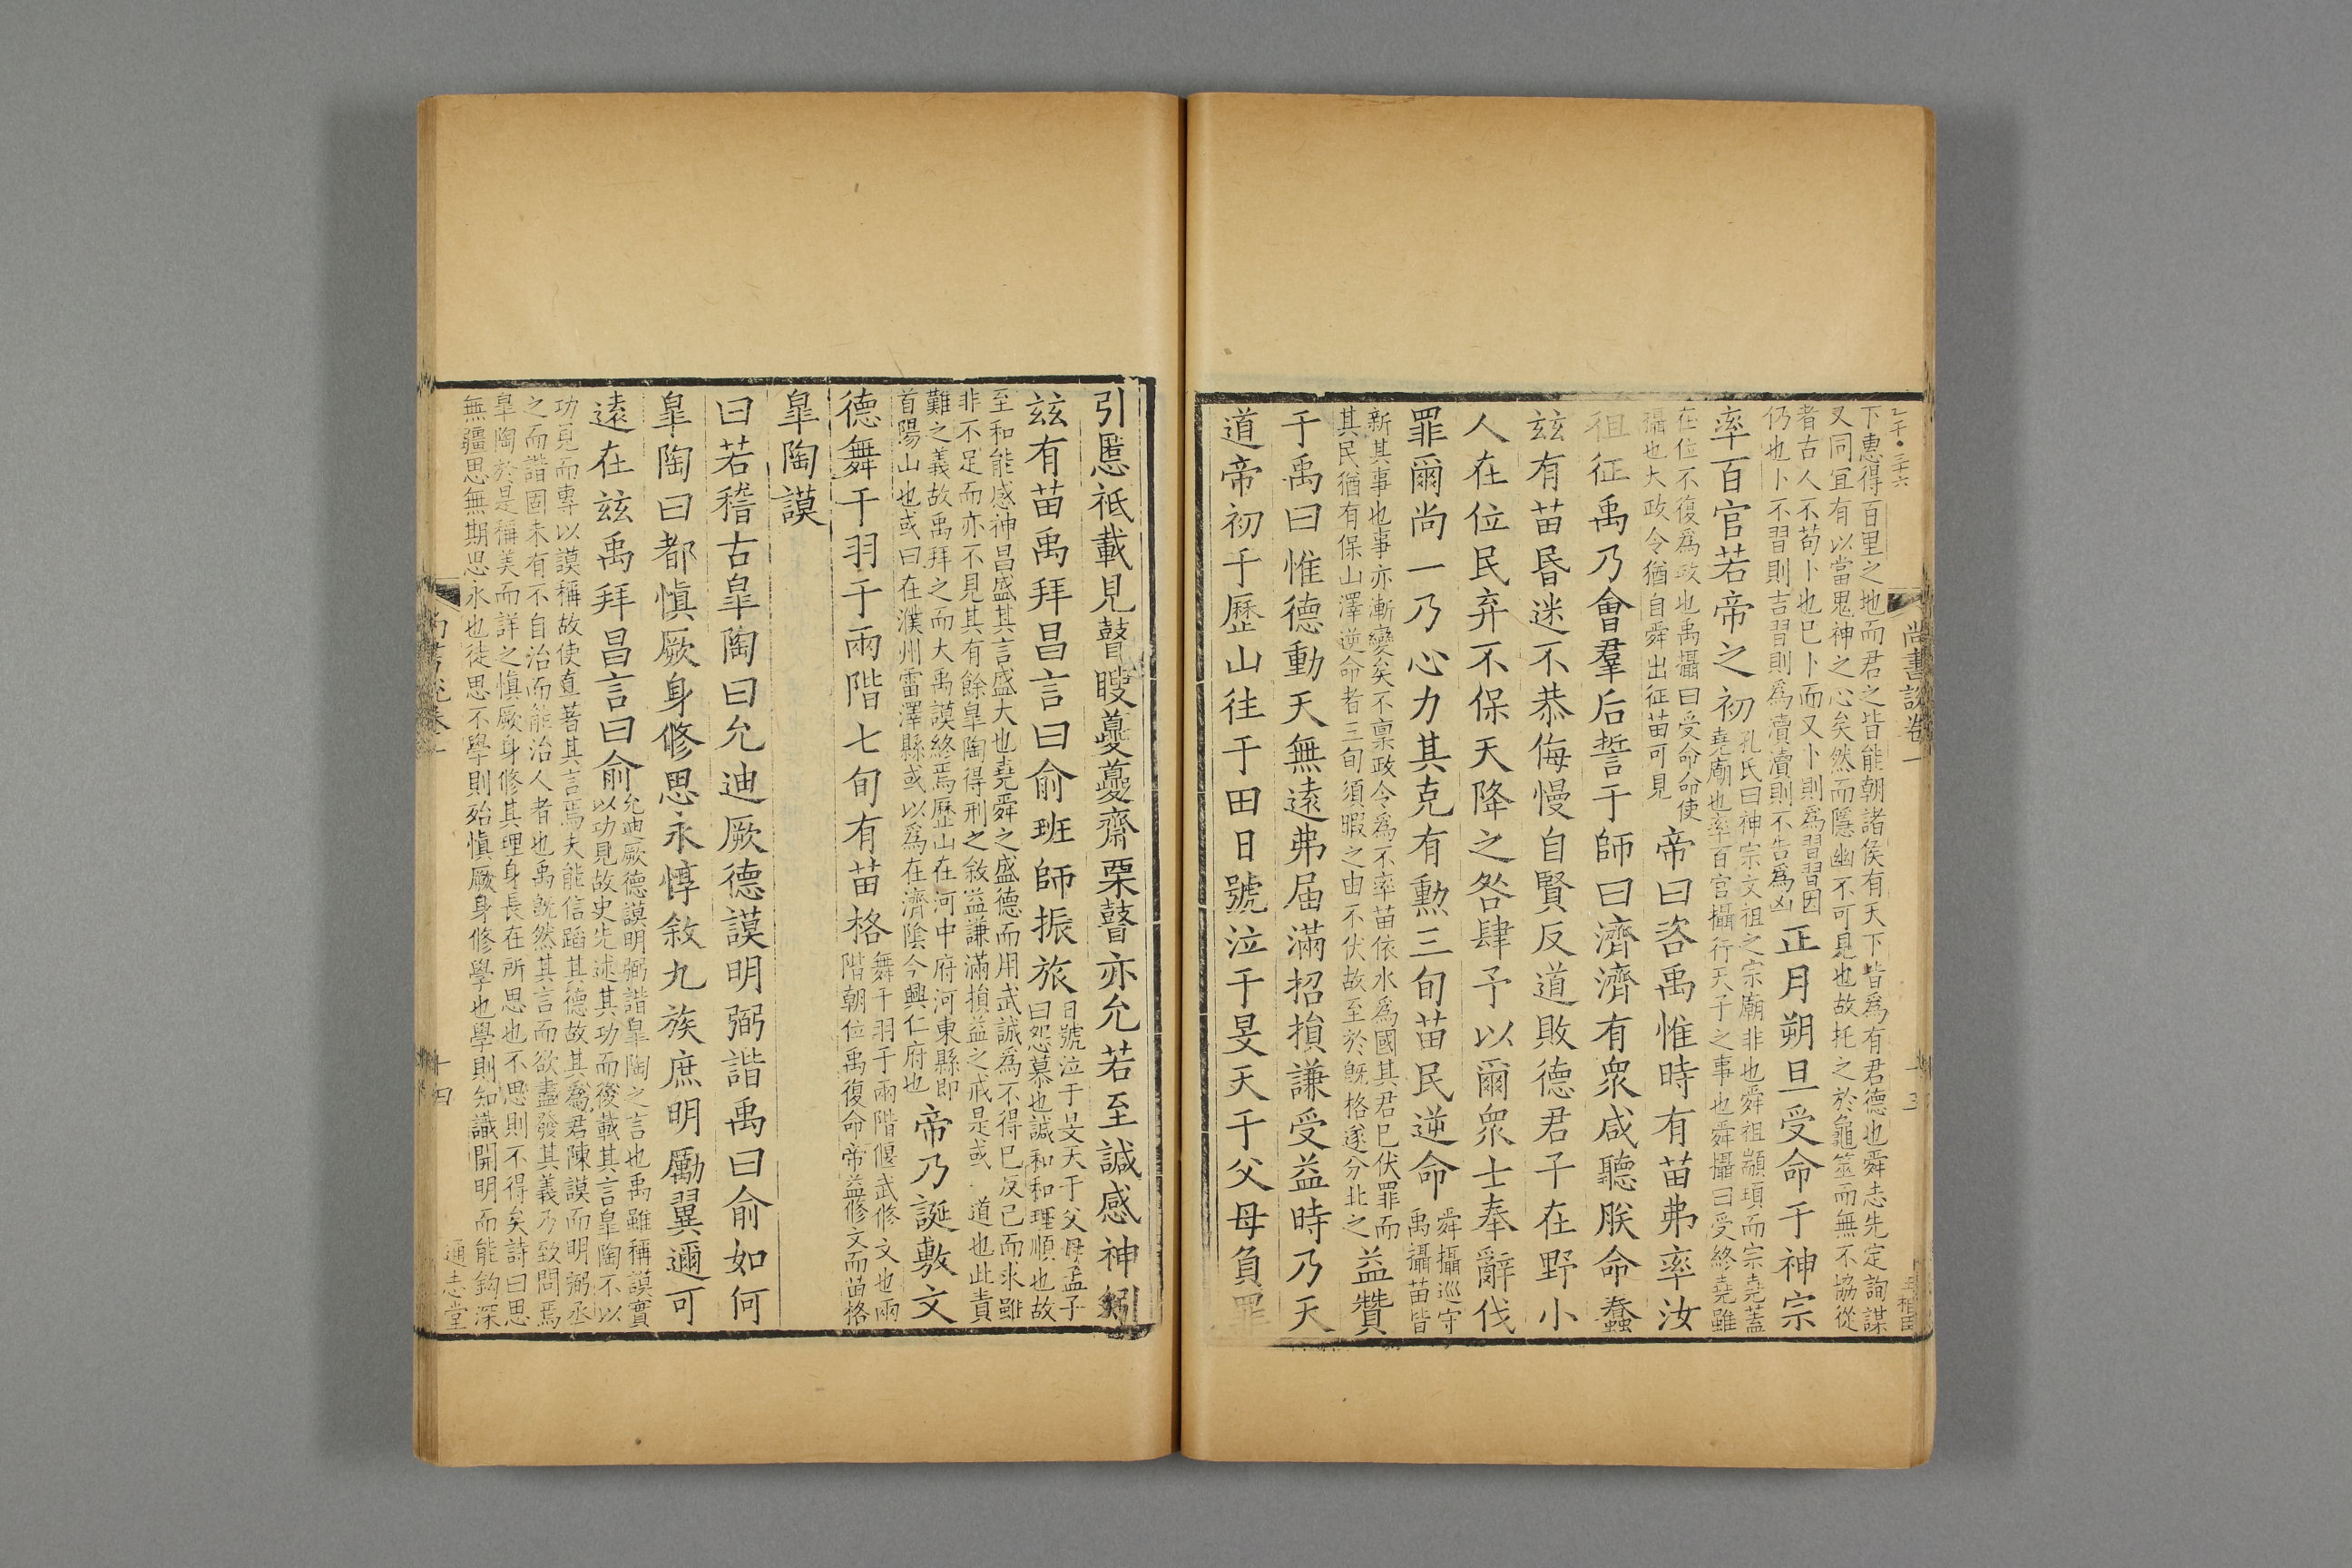 乙千·三十六
尚書說卷一
十三
下惠得百里之地而君之皆能朝諸侯有天下皆爲有君德也舜志先定詢謀
又同宜有以當鬼神之心矣然而隱幽不可見也故托之於龜筮而無不協從
者古人不苟卜也巳卜而又卜則爲習習因
仍也卜不習則吉習則爲瀆瀆則不告爲凶
正月朔旦受命于神宗
率百官若帝之初
孔氏曰神宗文祖之宗廟非也舜祖顓頊而宗堯蓋
堯廟也率百官攝行天子之事也舜攝曰受終堯雖
在位不復爲政也禹攝曰受命命使
攝也大政令猶自舜出征苗可見
帝曰咨禹惟時有苗弗率汝
徂征禹乃會羣后誓于師曰濟濟有衆咸聽朕命蠢
兹有苗昬迷不恭侮慢自賢反道敗德君子在野小
人在位民弃不保天降之咎肆予以爾衆士奉辭伐
罪爾尚一乃心力其克有勳三旬苗民逆命
舜攝巡守
禹攝苗皆
新其事也事亦漸變矣不禀政令爲不率苗依水爲國其君巳伏罪而
其民猶有保山澤逆命者三旬須暇之由不伏故至於旣格遂分北之
益贊
于禹曰惟德動天無遠弗屆滿招損謙受益時乃天
道帝初于歷山往于田日號泣于旻天于父母負罪
引慝祗載見瞽瞍夔夔齋栗瞽亦允若至諴感神矧
兹有苗禹拜昌言曰俞班師振旅
日號泣于旻天于父母孟子
曰怨慕也諴和和理順也故
至和能感神昌盛其言盛大也堯舜之盛德而用武誠爲不得巳反己而求雖
非不足而亦不見其有餘皐陶得刑之敘益謙滿損益之戒是或 道也此責
難之義故禹拜之而大禹謨終焉歷山在河中府河東縣即
首陽山也或曰在濮州雷澤縣或以爲在濟隂今興仁府也
帝乃誕敷文
德舞干羽于兩階七旬有苗格
舞干羽于兩階偃武修文也兩
階朝位禹復命帝益修文而苗格
皐陶謨
曰若稽古皐陶曰允迪厥德謨明弼諧禹曰俞如何
皐陶曰都愼厥身修思永惇敘九族庶明勵翼邇可
遠在兹禹拜昌言曰俞
允迪厥德謨明弼諧皐陶之言也禹雖稱謨實
以功見故史先述其功而後載其言皐陶不以
功見而專以謨稱故使直著其言焉夫能信蹈其德故其爲君陳謨而明弼丞
之而諧固未有不自治而能治人者也禹旣然其言而欲盡發其義乃致問焉
皐陶於是稱美而詳之愼厥身修其理身長在所思也不思則不得矣詩曰思
無疆思無期思永也徒思不學則殆愼厥身修學也學則知識開明而能鉤深
尚書說卷一
十四
通志堂